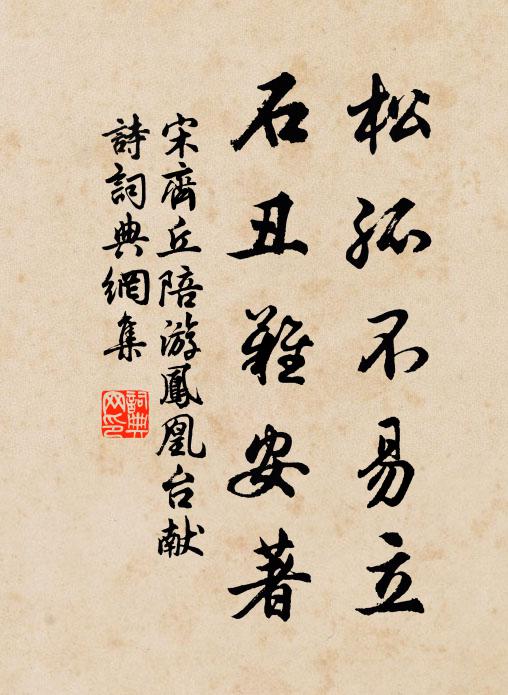 松孤不易立
石丑難安著
宋齊丘陪游鳳凰台献
詩詞典網集
詞典
网印